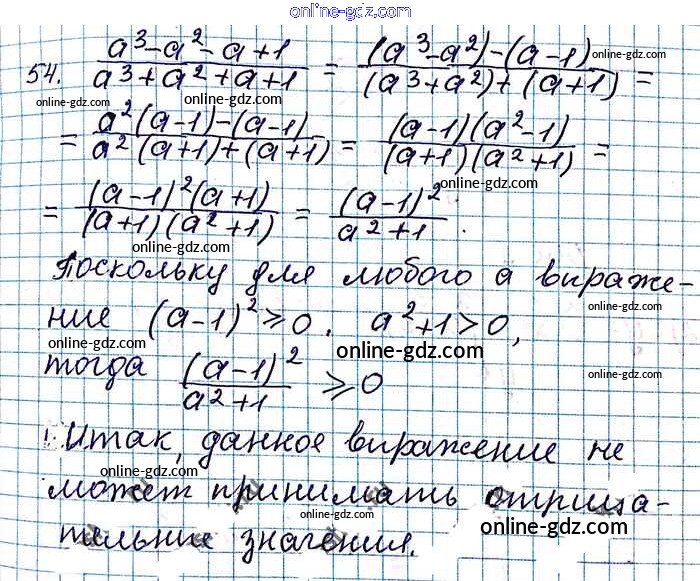 online-gdz.com
54. (a³-a²-a+1)/(a³+a²+a+1) = ((a³-a²)-(a-1))/((a³+a²)+(a+1)) =
online-gdz.com online-gdz.com online-gdz.com
= (a²(a-1)-(a-1))/(a²(a+1)+(a+1)) = ((a-1)(a²-1))/((a+1)(a²+1)) =
online-gdz.com
= ((a-1)²(a+1))/((a+1)(a²+1)) = (a-1)²/(a²+1).
online-gdz.com online-gdz.com
Поскольку для любого а выраже-
ние (a-1)²≥0, a²+1>0,
online-gdz.com online-gdz.com online-gdz.com
тогда (a-1)²/(a²+1) ≥0
online-gdz.com
Итак, данное выражение не
online-gdz.com online-gdz.com
может принимать отрица-
online-gdz.com online-gdz.com
тельные значения.